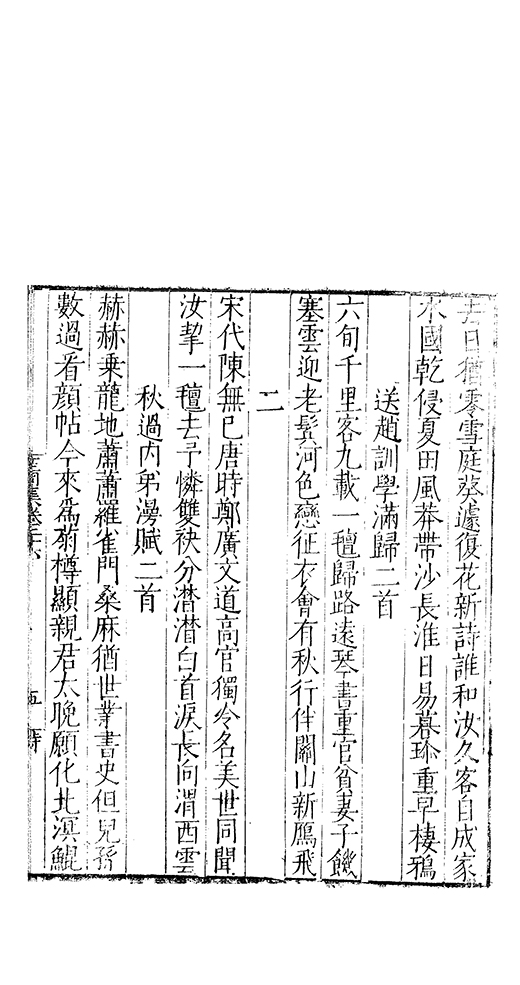 去日猶零雪庭葵遽復花新詩誰和汝久客自成家
水國乾侵夏田風莽帶沙長淮日易暮珍重早棲鴉
送趙訓學滿歸二首
六旬千里客九載一氊歸路遠琴書重官貧妻子饑
塞雲迎老鬂河色戀征衣會有秋行伴關山新鴈飛
二
宋代陳無已唐時鄭廣文道高官獨冷名美世同聞
汝挈一氊去予憐雙袂分潸潸白首淚長向渭西雲
秋過内弟漫賦二首
赫赫乗龍地蕭蕭羅雀門桑麻猶世業書史但兒孫
數過看顔帖今來爲菊樽顯親君太晚願化北溟鯤
五